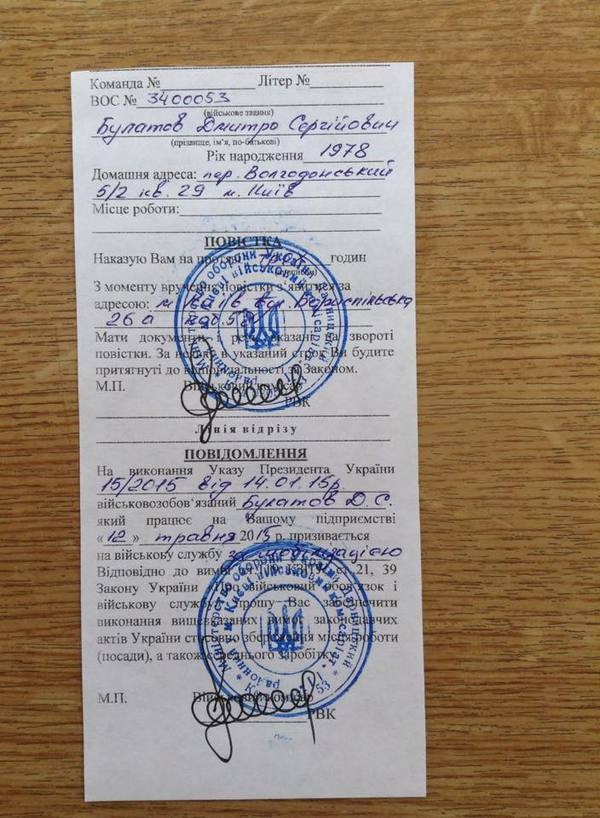 Команда № Літер №
ВОС № 3400053
(військове звання)
Булатов Дмитро Сергійович
(прізвище, ім'я, по-батькові)
Рік народження 1978
Домашня адреса: пер. Волгодонський
5/2 кв. 29 м. Київ
Місце роботи:
ПОВІСТКА
Наказую Вам на протязі годин
З моменту вручення повістки з'явитися за
адресою: м. Київ вул. Бориспільська
26 а
Мати документи і речі вказані на звороті
повістки. За неявку в указаний строк Ви будите
притягнуті до відповідальності за Законом.
М.П. Військовий комісар
РВК
Лінія відрізу
ПОВІДОМЛЕННЯ
На виконання Указу Президента України
15/2015 від 14.01.15р.
військовозобов'язаний Булатов Д.С.
який працює на Вашому підприємстві
«12» травня 2015 р. призивається
на військову службу за мобілізацією
Відповідно до вимог ст. 119 ст. 21, 39
Закону України „Про військовий обов'язок і
військову службу" прошу Вас забезпечити
виконання вищевказаних вимог законодавчих
актів України стосовно збереження місця роботи
(посади), а також середнього заробітку.
М.П. Військовий комісар
РВК